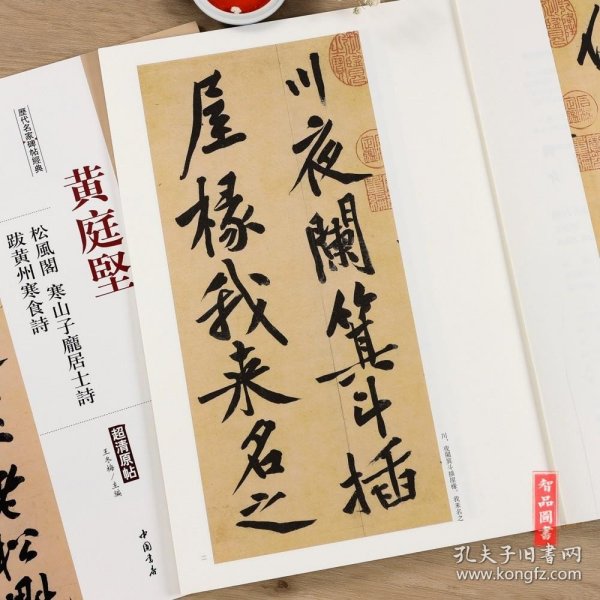 歷代名家碑帖經典
黄庭堅
松風閣 寒山子龐居士詩
跋黄州寒食詩
超清原帖
王冬梅/主编
中國書店
川夜闌箕斗插
屋椽我来名之
川，夜闌箕斗插屋椽。我来名之
二
老松魁
智品圖書
孔夫子旧书网
www.kongfz.com